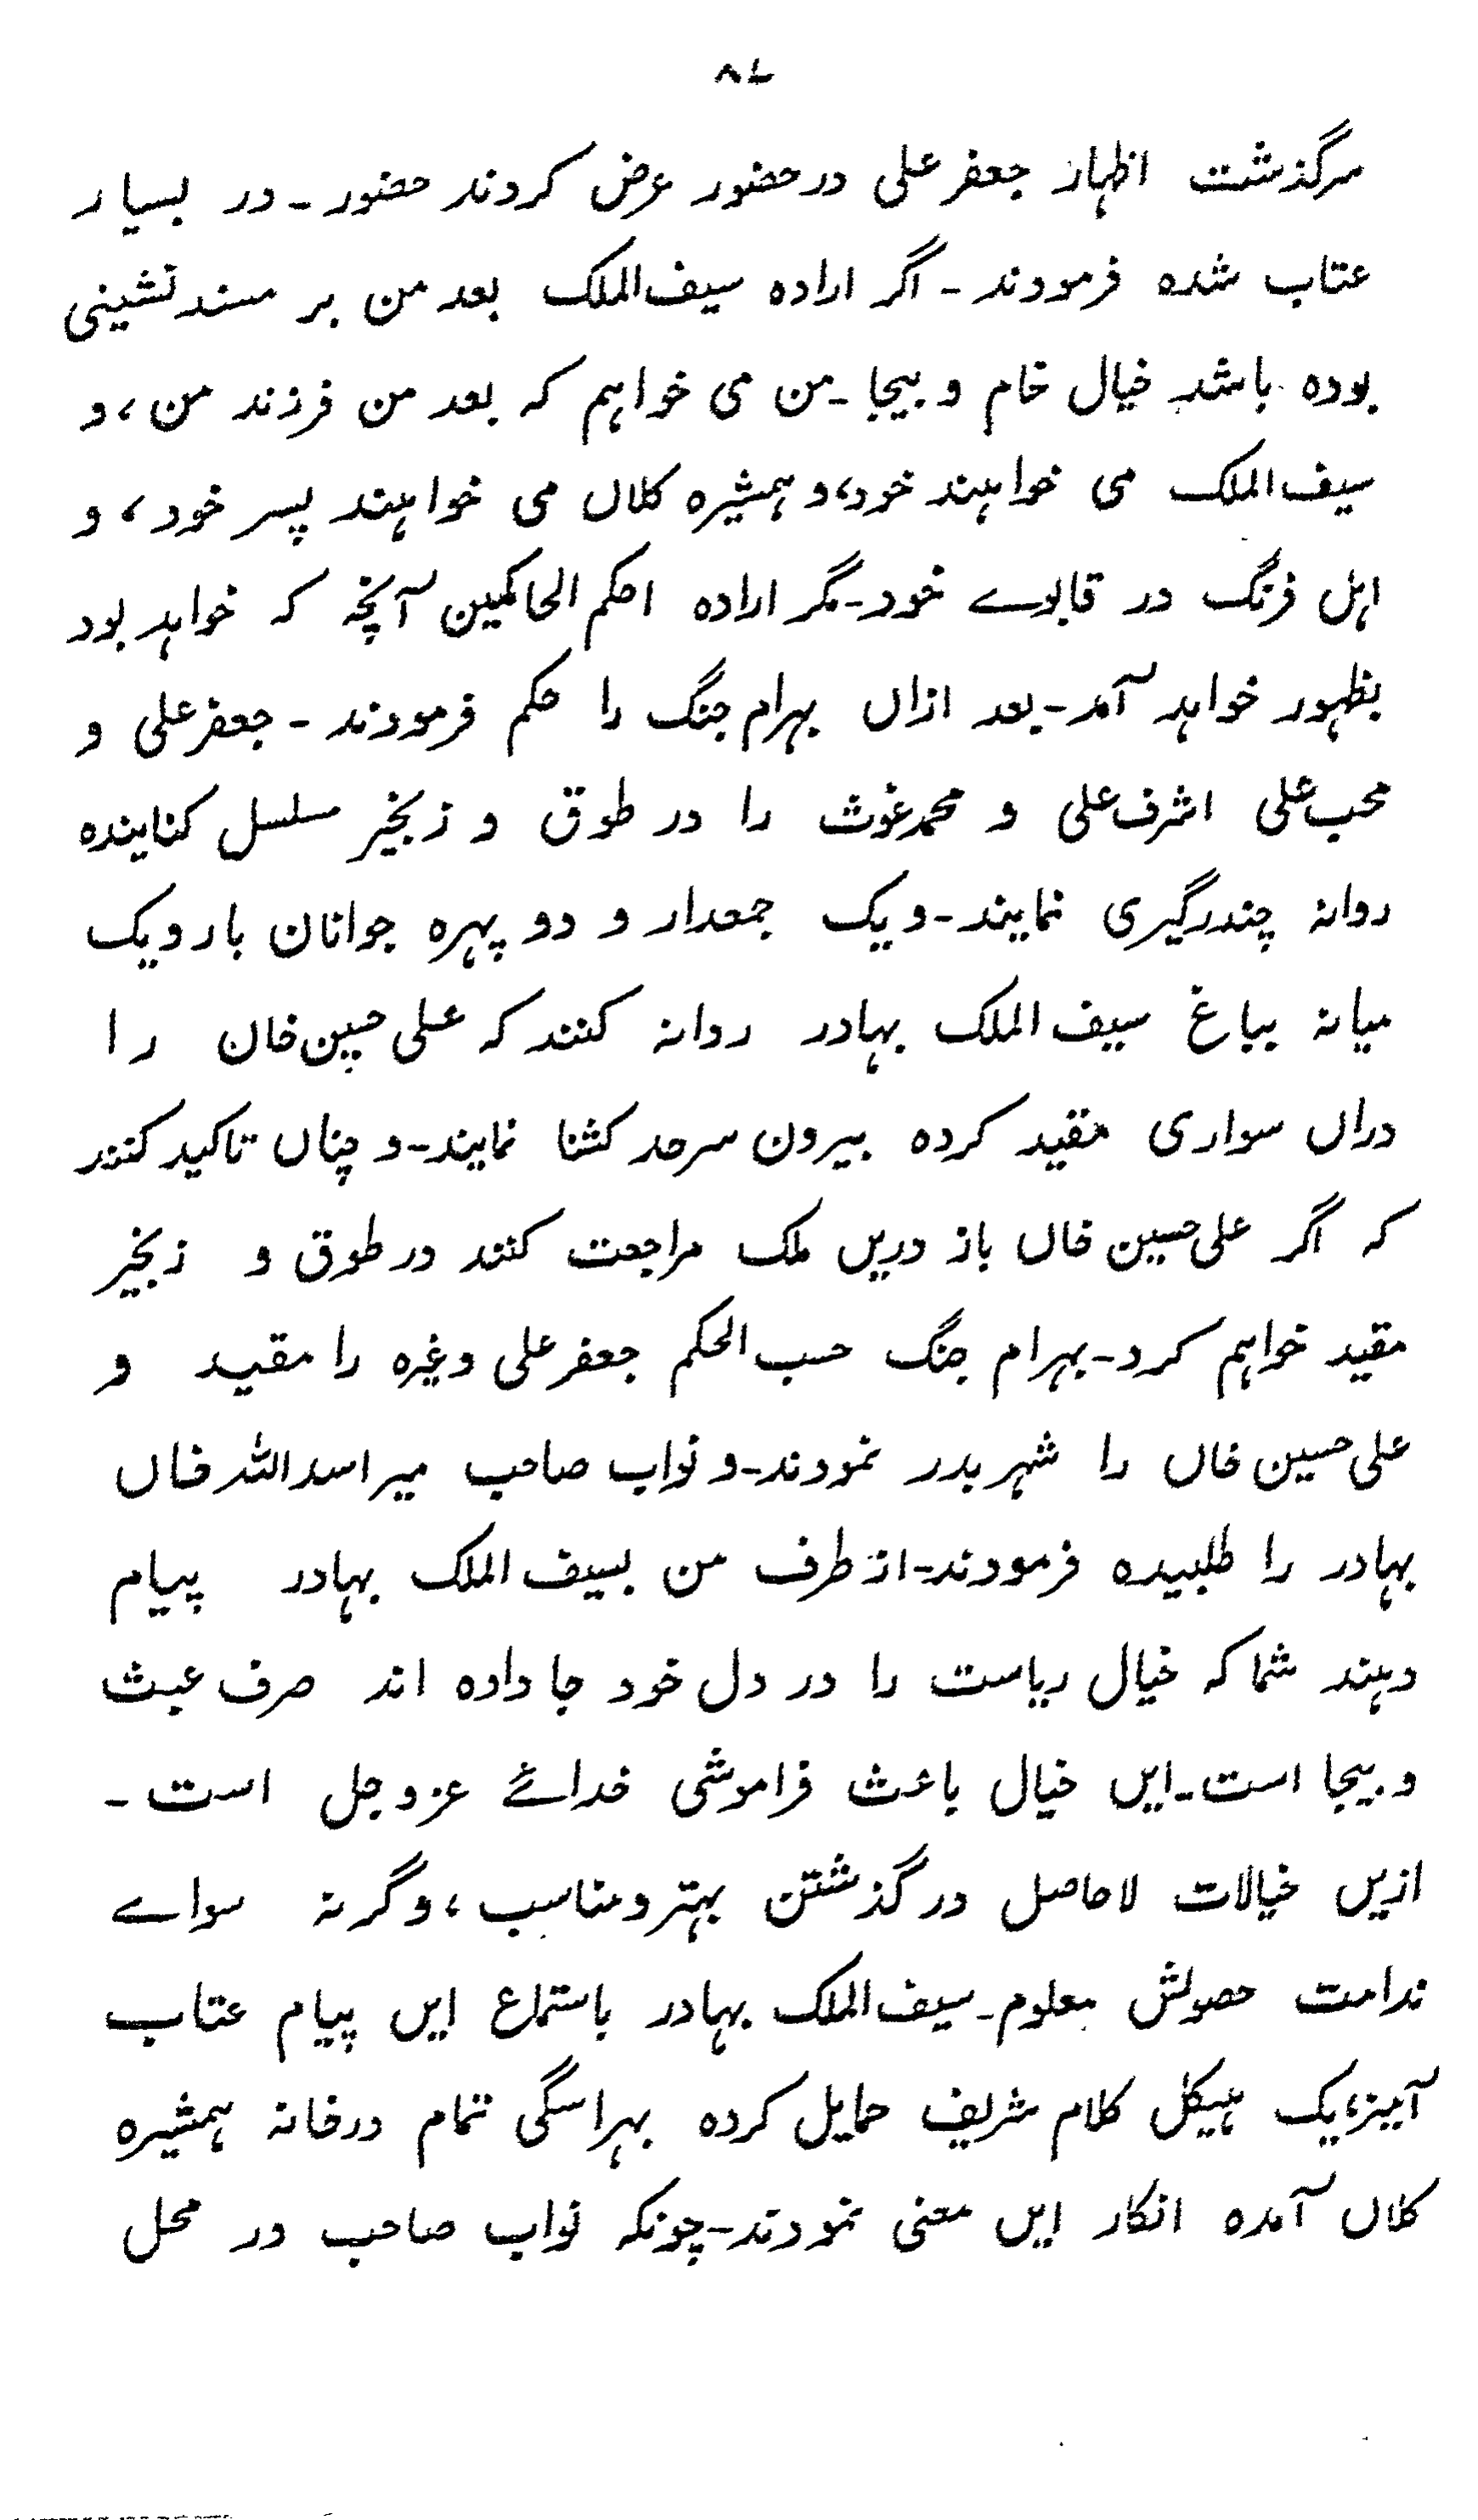 ۸۷
سرگذشت اظہار جعفر علی در حضور عرض کردند حضور ـ در بسیار
عتاب شدہ فرمودند ـ اگر ارادہ سیف الملک بعد من بر مسند نشینی
بودہ باشد خیال خام و بیجا ـ من می خواہم کہ بعد من فرزند من، و
سیف الملک می خواہند خود، و ہمشیرہ کلاں می خواہند پسر خود، و
اہل فرنگ در قابوے خود ـ مگر ارادہ احکم الحاکمین آنچہ کہ خواہد بود
بظہور خواہد آمد ـ بعد ازاں بہرام جنگ را حکم فرمودند ـ جعفر علی و
محب علی اشرف علی و محمد غوث را در طوق و زنجیر مسلسل کنانیدہ
روانہ چندرگیری نمایند ـ و یک جمعدار و دو پہرہ جوانان بار و یک
میانہ بباغ سیف الملک بہادر روانہ کنند کہ علی حسین خان را
دراں سواری مقید کردہ بیرون سرحد کشنا نمایند ـ و چناں تاکید کنند
کہ اگر علی حسین خاں باز دریں ملک مراجعت کنند در طوق و زنجیر
مقید خواہم کرد ـ بہرام جنگ حسب الحکم جعفر علی وغیرہ را مقید و
علی حسین خاں را شہر بدر نمودند ـ و نواب صاحب میر اسد اللہ خاں
بہادر را طلبیدہ فرمودند ـ از طرف من بسیف الملک بہادر پیام
دہند شما کہ خیال ریاست را در دل خود جا دادہ اند صرف عبث
و بیجا است ـ ایں خیال باعث فراموشی خدائے عز و جل است ـ
ازیں خیالات لا حاصل در گذشتن بہتر و مناسب، وگرنہ سواے
ندامت حصولش معلوم ـ سیف الملک بہادر باستماع ایں پیام عتاب
آمیز، یک ہیکل کلام شریف حمایل کردہ بہراسگی تمام در خانہ ہمشیرہ
کلاں آمدہ انکار ایں معنی نمودند ـ چونکہ نواب صاحب در محل